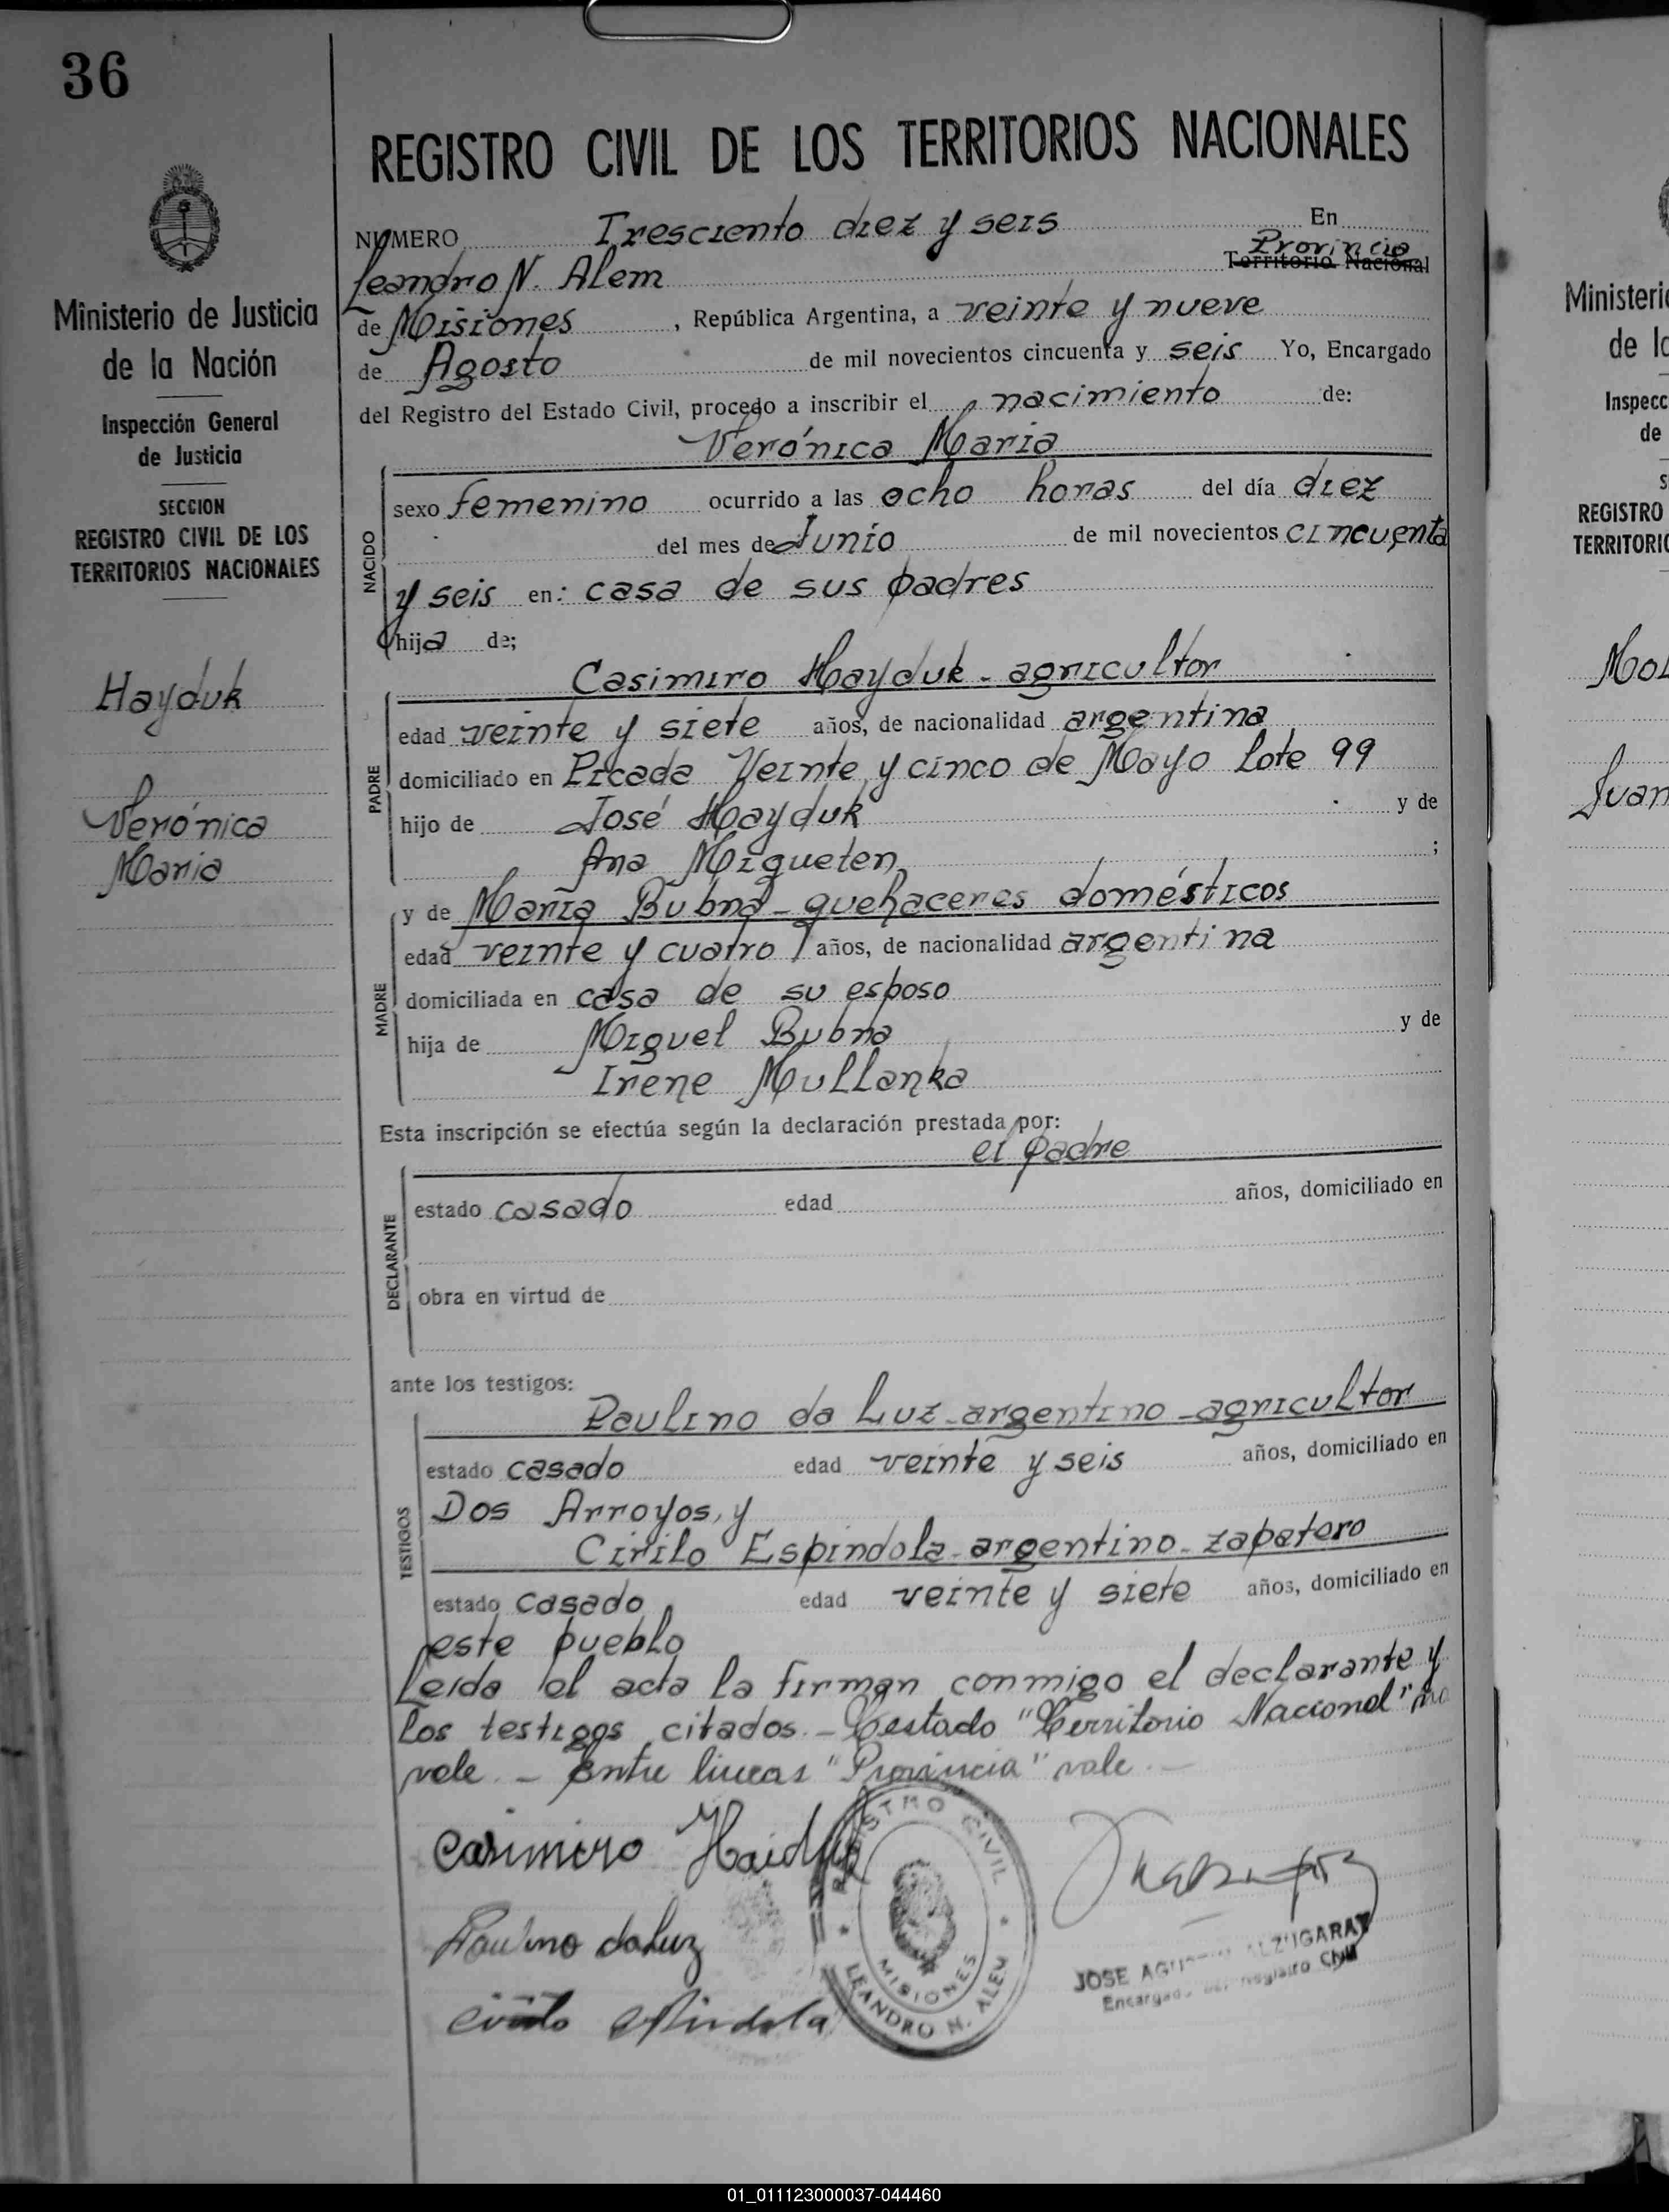 36
REGISTRO CIVIL DE LOS TERRITORIOS NACIONALES
NUMERO Tresciento diez y seis En
Leandro N. Alem Provincia
Territorio Nacional
de Misiones, República Argentina, a veinte y nueve
de Agosto de mil novecientos cincuenta y seis Yo, Encargado
del Registro del Estado Civil, procedo a inscribir el nacimiento de:
Verónica Maria
NACIDO
sexo femenino ocurrido a las ocho horas del día diez
del mes de Junio de mil novecientos cincuenta
y seis en: casa de sus padres
hija de;
Casimiro Hayduk - agricultor
PADRE
edad veinte y siete años, de nacionalidad argentina
domiciliado en Picada Veinte y cinco de Mayo Lote 99
hijo de José Hayduk y de
Ana Migueten;
y de Maria Bubna - quehaceres domésticos
MADRE
edad veinte y cuatro años, de nacionalidad argentina
domiciliada en casa de su esposo
hija de Miguel Bubna y de
Irene Mullanka
Esta inscripción se efectúa según la declaración prestada por:
el padre
DECLARANTE
estado casado edad años, domiciliado en
obra en virtud de
ante los testigos:
Paulino da Luz - argentino - agricultor
TESTIGOS
estado casado edad veinte y seis años, domiciliado en
Dos Arroyos, y
Cirilo Espindola - argentino - zapatero
estado casado edad veinte y siete años, domiciliado en
este pueblo
Leida el acta la firman conmigo el declarante y
los testigos citados. - Testado "Territorio Nacional" no
vale. - Entre lineas "Provincia" vale. -
Casimiro Haiduk
Paulino da Luz
Cirilo Espindola
REGISTRO CIVIL
MISIONES
LEANDRO N. ALEM
JOSE
Encargado del Registro Civil
Ministerio de Justicia
de la Nación
Inspección General
de Justicia
SECCION
REGISTRO CIVIL DE LOS
TERRITORIOS NACIONALES
Hayduk
Verónica
Maria
Ministeri
de la
Inspecc
de
S
REGISTRO
TERRITORIO
Mol
Juan
01_011123000037-044460